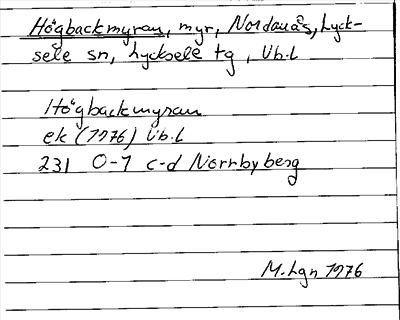 Högbackmyran, myr, Nordanås, Lyck-
sele sn, Lycksele tg, Vb.l
Högbackmyran
ek (1976) Vb.l
231 0-1 c-d Norrbyberg
M.Lgn 1976